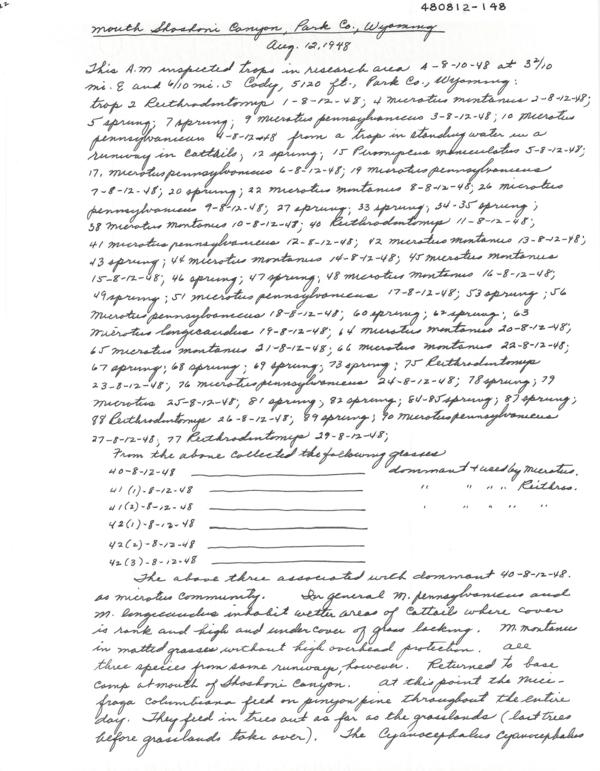 480812-148
Mouth Shoshoni Canyon, Park Co., Wyoming
Aug. 12, 1948
This A.M inspected traps in research area 4-8-10-48 at 3 2/10
mi. E and 6/10 mi. S Cody, 5120 ft., Park Co., Wyoming:
trap 2 Reithrodontomys 1-8-12-48; 4 Microtus montanus 2-8-12-48;
5 sprung; 7 sprung; 9 Microtus pennsylvanicus 3-8-12-48; 10 Microtus
pennsylvanicus 4-8-12-48 from a trap in standing water in a
runway in cattails; 12 sprung; 15 Peromyscus maniculatus 5-8-12-48;
17, Microtus pennsylvanicus 6-8-12-48; 19 Microtus pennsylvanicus
7-8-12-48; 20 sprung; 22 Microtus montanus 8-8-12-48; 26 Microtus
pennsylvanicus 9-8-12-48; 27 sprung; 33 sprung; 34-35 sprung;
38 Microtus montanus 10-8-12-48; 40 Reithrodontomys 11-8-12-48;
41 Microtus pennsylvanicus 12-8-12-48; 42 Microtus montanus 13-8-12-48;
43 sprung; 44 Microtus montanus 14-8-12-48; 45 Microtus montanus
15-8-12-48; 46 sprung; 47 sprung; 48 Microtus montanus 16-8-12-48;
49 sprung; 51 Microtus pennsylvanicus 17-8-12-48; 53 sprung; 56
Microtus pennsylvanicus 18-8-12-48; 60 sprung; 62 sprung; 63
Microtus longicaudus 19-8-12-48; 64 Microtus montanus 20-8-12-48;
65 Microtus montanus 21-8-12-48; 66 Microtus montanus 22-8-12-48;
67 sprung; 68 sprung; 69 sprung; 73 sprung; 75 Reithrodontomys
23-8-12-48; 76 Microtus pennsylvanicus 24-8-12-48; 78 sprung; 79
Microtus 25-8-12-48; 81 sprung; 82 sprung; 84-85 sprung; 87 sprung;
88 Reithrodontomys 26-8-12-48; 89 sprung; 90 Microtus pennsylvanicus
27-8-12-48; 77 Reithrodontomys 29-8-12-48;
From the above collected the following grasses
40-8-12-48 dominant & used by Microtus.
41(1)-8-12-48 " " " " Reithros.
41(2)-8-12-48 " " " "
42(1)-8-12-48
42(2)-8-12-48
42(3)-8-12-48
The above three associated with dominant 40-8-12-48.
as Microtus community. In general M. pennsylvanicus and
M. longicaudus inhabit wetter areas of cattails where cover
is rank and high and undercover of grass lacking. M. montanus
in matted grasses without high overhead protection. All
three species from some runways, however. Returned to base
camp at mouth of Shoshoni Canyon. At this point the Nuci-
fraga columbiana feed on pinyon pine throughout the entire
day. They feed in trees out as far as the grasslands (last trees
before grasslands take over). The Cyanocephalus cyanocephalus